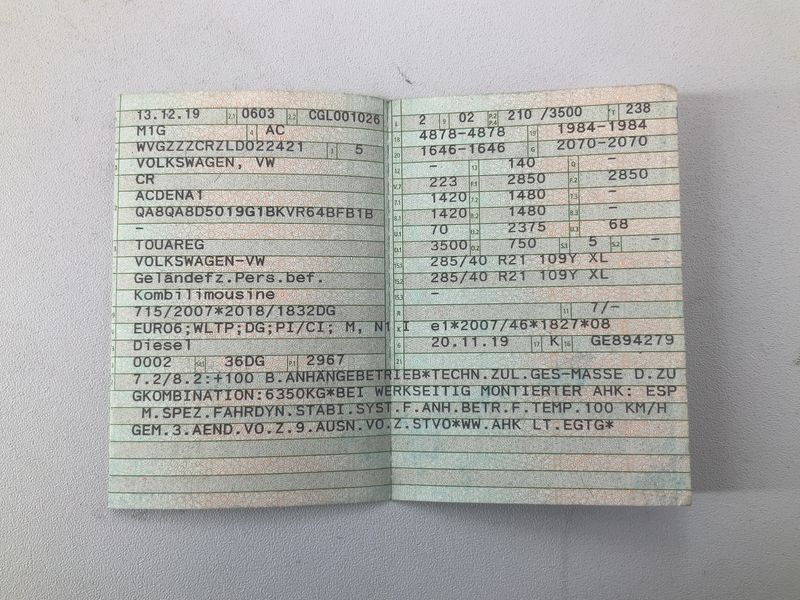 13.12.19 2.1 0603 2.2 CGL001026
M1G 4 AC
WVGZZZCRZLD022421 3 5
VOLKSWAGEN, VW
CR
ACDENA1
QA8QA8D5019G1BKVR64BFB1B
-
TOUAREG
VOLKSWAGEN-VW
Geländefz.Pers.bef.
Kombilimousine
715/2007*2018/1832DG
EURO6;WLTP;DG;PI/CI; M, N1 I
Diesel
0002 36DG P.1 2967
2 9 02 P.2 P.4 210 /3500 T 238
18 4878-4878 19 1984-1984
20 1646-1646 G 2070-2070
12 - 13 140 Q -
V.7 223 F.1 2850 F.2 2850
7.1 1420 7.2 1480 7.3 -
8.1 1420 8.2 1480 8.3 -
U.1 70 U.2 2375 U.3 68
O.1 3500 O.2 750 S.1 5 S.2 -
15.1 285/40 R21 109Y XL
15.2 285/40 R21 109Y XL
15.3 -
R 11 7/-
K e1*2007/46*1827*08
6 20.11.19 17 K 16 GE894279
21
7.2/8.2:+100 B.ANHÄNGEBETRIEB*TECHN.ZUL.GES-MASSE D.ZU
GKOMBINATION:6350KG*BEI WERKSEITIG MONTIERTER AHK: ESP
M.SPEZ.FAHRDYN.STABI.SYST.F.ANH.BETR.F.TEMP.100 KM/H
GEM.3.AEND.VO.Z.9.AUSN.VO.Z.STVO*WW.AHK LT.EGTG*